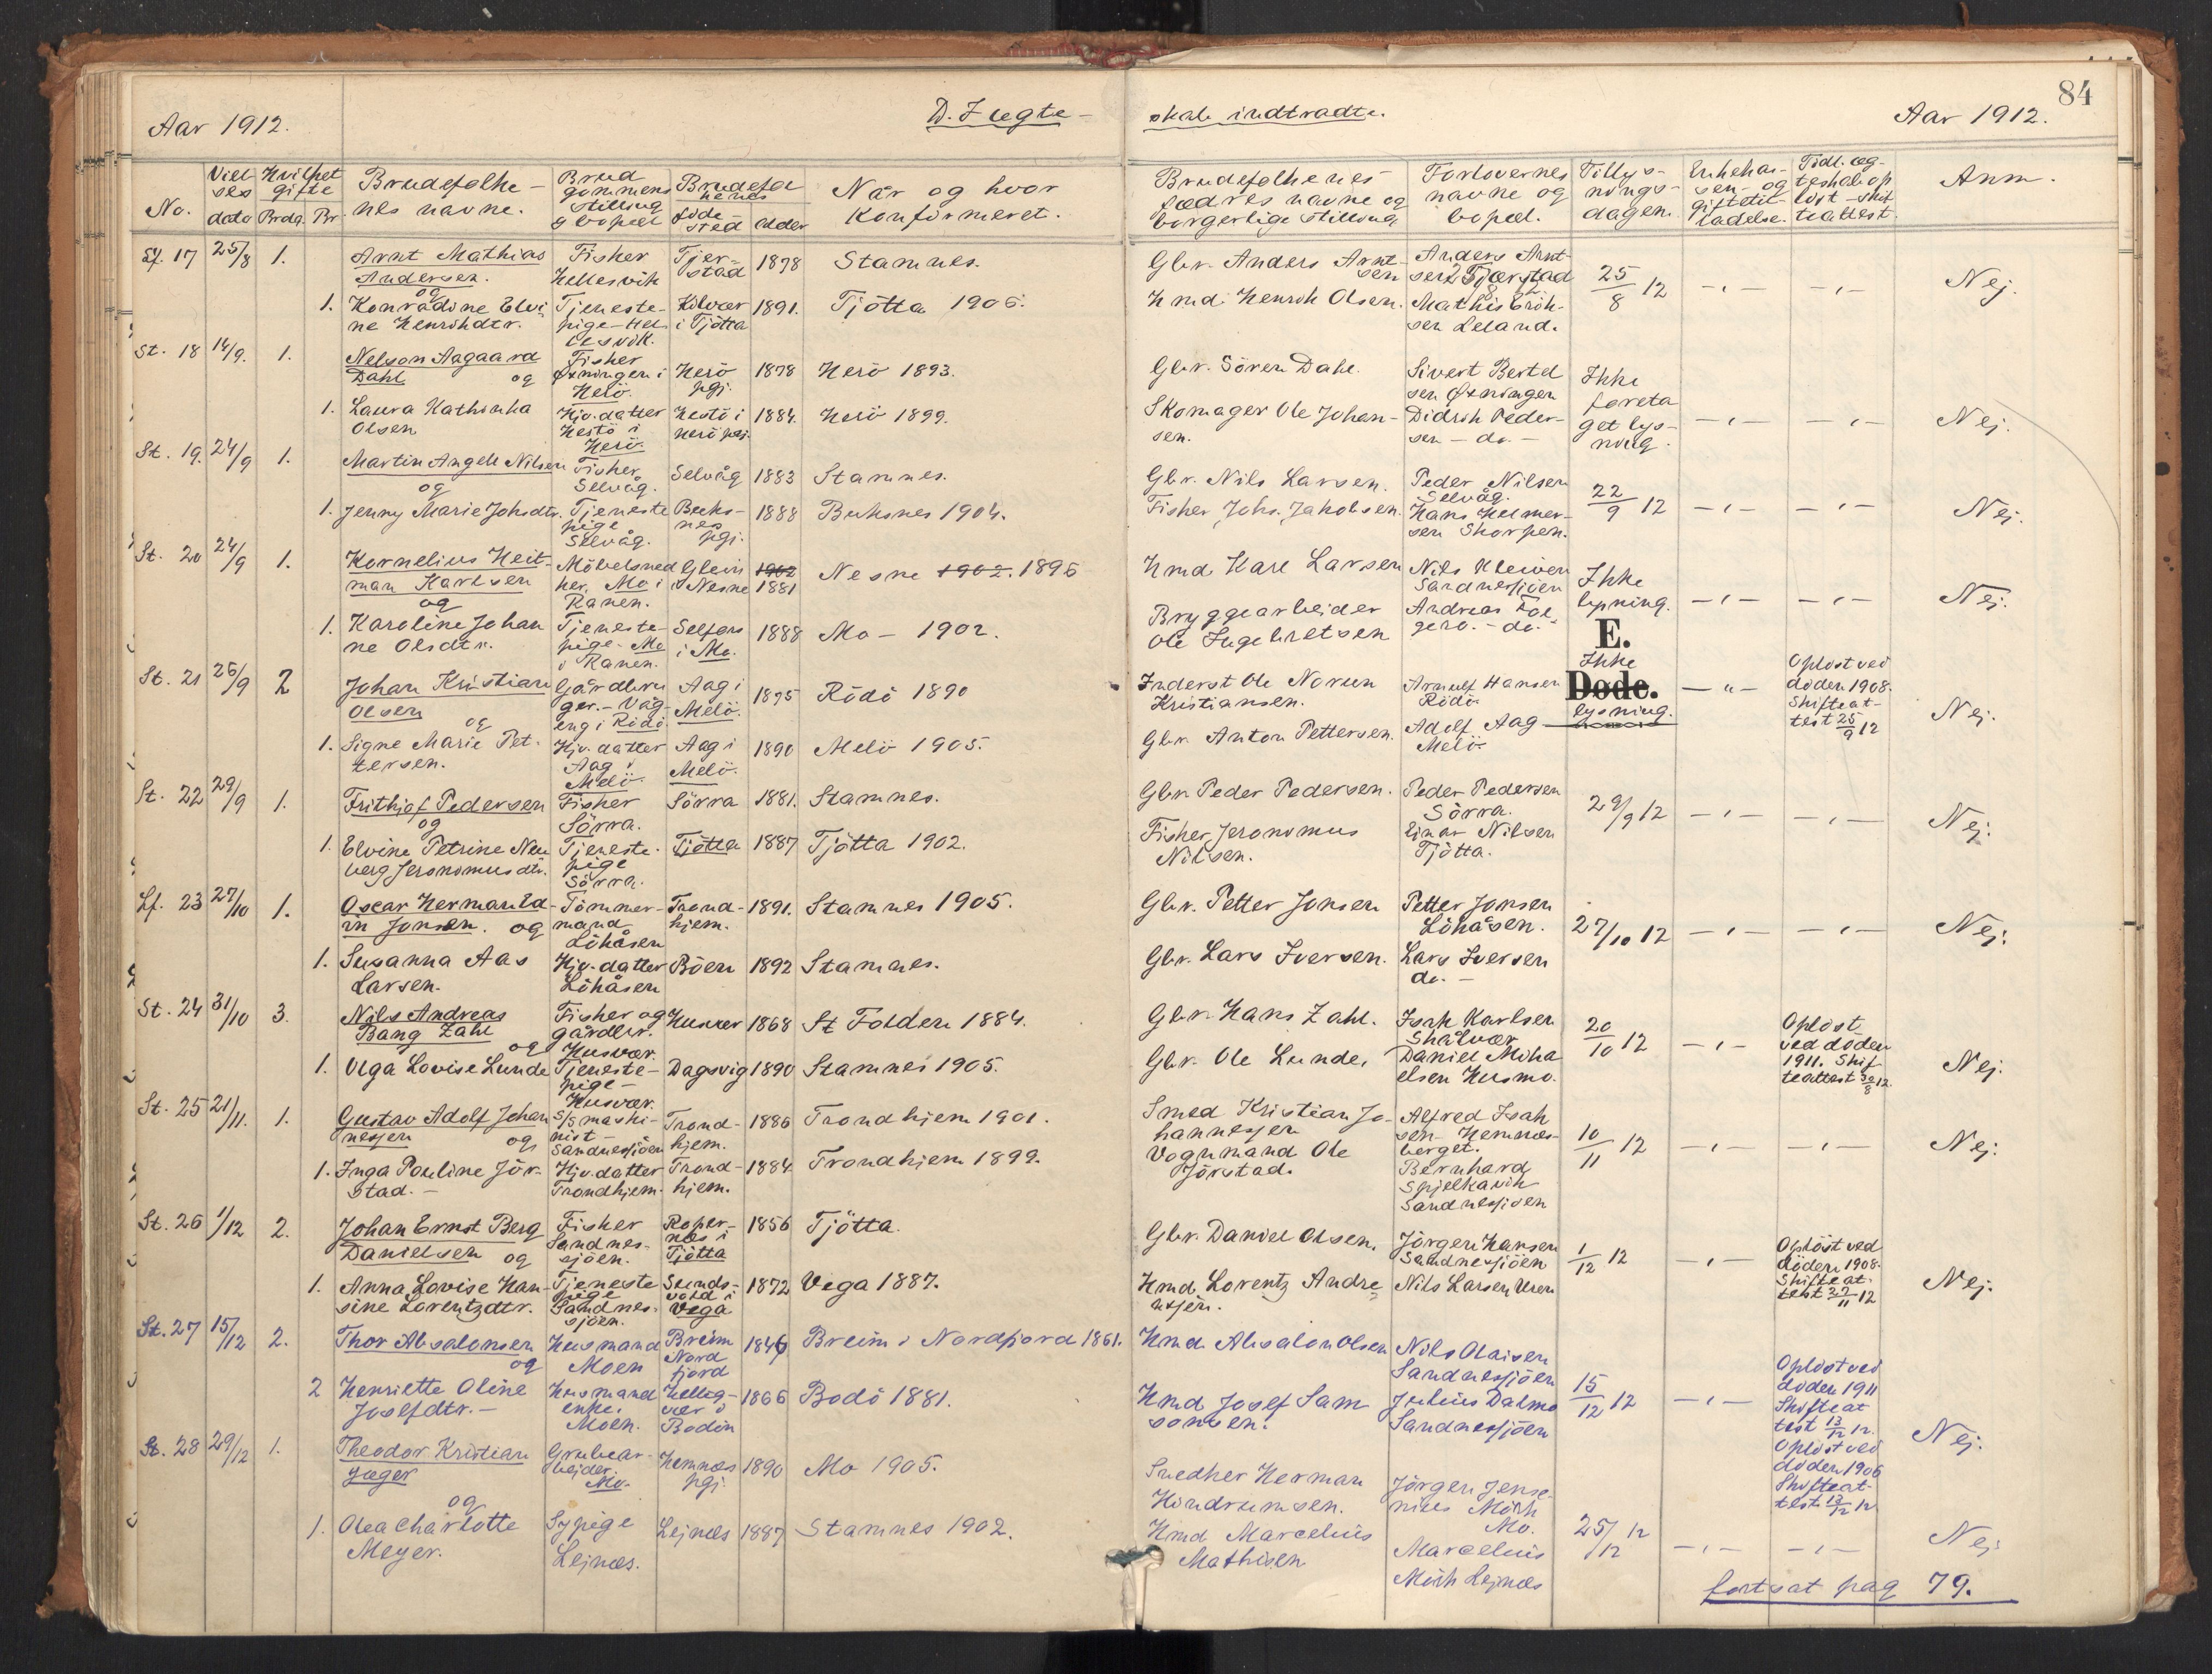 84
Aar 1912.
D. Jugte-
skab indtradte.
Aar 1912.
No.
Viel
ses
dato
Hvilket
gifte
Brdg. Br.
Brudefolke-
nes navne.
Brud
gommens
stilling
g bopæl
Brudefol
kenes
føde
sted
alder
Når og hvor
konfirmeret.
Brudefolkenes
fædres navne og
borgerlige stilling
Forlovernes
navne og
bopæl.
Tillys-
nings-
dagen
Enkekas-
sen- og
giftetil-
ladelse.
Tidl. æg-
teskab op
løst - skif
teattest.
Anm.
Lf. 17
25/8
1.
Arnt Mathias
Andersen.
og
Fisker
Hellesvik
Tjer-
stad
1878
Stamnes.
Gbr. Anders Arnt-
sen
Anders Arnt-
sen Tjærstad
25/8 12
-"-
-"-
Nej.
1.
Konradine Elvi
ne Henrikdtr.
Tjeneste-
pige - Hel
lesvik.
Kilvær
i Tjøtta
1891.
Tjøtta 1906.
Hmd. Henrik Olsen.
Mathis Erik-
sen Leland.
St. 18
14/9.
1.
Nelson Aagaard
Dahl og
Fisker
Øxningen i
Herö.
Herö
pgj.
1878
Herö 1893.
Gbr. Sören Dahl.
Sivert Bertel
sen Øxningen
Ikke
foreta
get lys-
ning.
-"-
-"-
Nej.
1.
Laura Kathinka
Olsen
Hjv. datter
Hestö i
Herö.
Hestö i
Herö pgj.
1884.
Herö 1899.
Skomager Ole Johan-
sen.
Didrik Peder-
sen - do -
St. 19.
24/9
1.
Martin Angell Nilsen
og
Fisker
Selvåg.
Selvåg
1883
Stamnes.
Gbr. Nils Larsen.
Peder Nilsen
Selvåg.
22/9 12
-"-
-"-
Nej.
1.
Jenny Marie Johsdtr.
Tjeneste
pige
Selvåg.
Buks-
nes
pgj.
1888
Buksnes 1904.
Fisker Johs. Jakobsen.
Hans Helmer-
sen Skorpen.
St. 20
24/9
1.
Kornelius Heit-
man Karlsen
og
Möbelsned
ker. Mo i
Ranen.
Glein
i Nesne
1902
1881
Nesne 1902. 1896
Hmd Karl Larsen
Nils Kleiven
Sandnessjöen
Ikke
lysning.
-"-
-"-
Nej.
1.
Karoline Johan
ne Olsdtr.
Tjeneste-
pige - Mo
i Ranen.
Selfors
i Mo.
1888
Mo - 1902.
Bryggearbeider
Ole Ingebretsen
Andreas Fol
gerö. - do. -
E.
St. 21
26/9
2
Johan Kristian
Olsen
og
Gårdbru
ger. - Våg-
eng i Rödö.
Aag i
Melö.
1875
Rödö 1890
Inderst Ole Norum
Kristiansen.
Arnulf Hansen
Rödö.
Ikke
Døde.
lysning.
-"-
Opløst ved
döden 1908.
Skifteat-
test 25/9 12
Nej.
1.
Signe Marie Pet-
tersen.
Hjv. datter
Aag i
Melö.
Aag i
Melö.
1890
Melö 1905.
Gbr. Anton Pettersen.
Adolf Aag
Melö.
St. 22
29/9
1.
Frithjof Pedersen
og
Fisker
Sörra.
Sörra
1881.
Stamnes.
Gbr. Peder Pedersen.
Peder Pedersen
Sörra.
29/9 12
-"-
-"-
Nej.
1.
Elvine Petrine Neu
berg Jeronomusdtr.
Tjeneste.
pige
Sörra.
Tjötta
1887
Tjötta 1902.
Fisker Jeronomus
Nilsen.
Einar Nilsen
Tjötta.
Lf. 23
27/10
1.
Oscar Herman Ed-
in Jonsen. og
Tömmer-
mand
Löhåsen
Trond-
hjem.
1891.
Stamnes 1905.
Gbr. Petter Jonsen
Petter Jonsen
Löhåsen.
27/10 12
-"-
-"-
Nej.
1.
Susanna Aas
Larsen.
Hjv. datter
Löhåsen
Böen
1892
Stamnes.
Gbr. Lars Iversen.
Lars Iversen
do. -
St. 24
31/10
3.
Nils Andreas
Bang Zahl
og
Fisker og
gårdbr.
Husvær.
Husvær
1868
St Folden 1884.
Gbr. Hans Zahl.
Isak Karlsen
Skålvær
20/10 12
-"-
Opløst
ved döden
1911. Skif
teattest 30/8 12.
Nej.
1.
Olga Lovise Lunde
Tjeneste-
pige -
Husvær.
Dagsvig
1890
Stamnes 1905.
Gbr. Ole Lunde.
Daniel Mika
elsen Husmo.
St. 25
21/11.
1.
Gustav Adolf Johan
nesen og
S/S maski-
nist -
Sandnessjöen
Trond-
hjem.
1886
Trondhjem 1901.
Smed Kristian Jo-
hannesen
Alfred Isak
sen - Hemnæs-
berget.
10/11 12
-"-
-"-
Nej.
1.
Inga Pauline Jör-
stad. -
Hjv. datter
Trondhjem.
Trond-
hjem.
1884
Trondhjem 1899.
Vognmand Ole
Jörstad.
Bernhard
Spjelkavik
Sandnessjöen
St. 26
1/12
2.
Johan Ernst Berg
Danielsen og
Fisker
Sandnes-
sjöen.
Roper-
næs i
Tjötta
1856
Tjötta.
Gbr. Daniel Olsen.
Jörgen Hansen
Sandnessjöen
1/12 12
-"-
Opløst ved
döden 1908.
Skifteat-
test 27/11 12
Nej.
1.
Anna Lovise Han-
sine Lorentzdtr.
Tjeneste
pige
Sandnes-
sjöen.
Sunds-
vold i
Vega
1872
Vega 1887.
Hmd. Lorentz Andre
asjen.
Nils Larsen Uren
St. 27
15/12
2.
Thor Absalonsen
og
Husmand
Moen
Breim
Nord
fjord
1846
Breim i Nordfjord 1861.
Hmd Absalon Olsen
Nils Olaisen
Sandnessjöen
15/12 12
-"-
Opløst ved
döden 1911
Skifteat
test 13/12 12.
Nej.
2
Henriette Oline
Josefdtr. -
Husmand
enke.
Moen.
Hellig-
vær i
Bodin
1866
Bodö 1881.
Hmd Josef Sam
sonsen.
Julius Dalmo
Sandnessjöen
Opløst ved
döden 1906
Skifteat-
test 13/12 12
St. 28
29/12
1.
Theodor Kristian
Jæger
og
Grubear-
beider.
Mo.
Hemnæs
pgj.
1890
Mo 1905.
Snedker Herman
Kondrumsen.
Jörgen Jense-
nius Mörk
Mo.
25/12 12
-"-
-"-
Nej
1.
Olea Charlotte
Meyer.
Sypige
Lejnæs.
Lejnæs
1887
Stamnes 1902.
Hmd Marcelius
Mathisen
Marcelius
Mörk Lejnæs
fortsat pag 79.